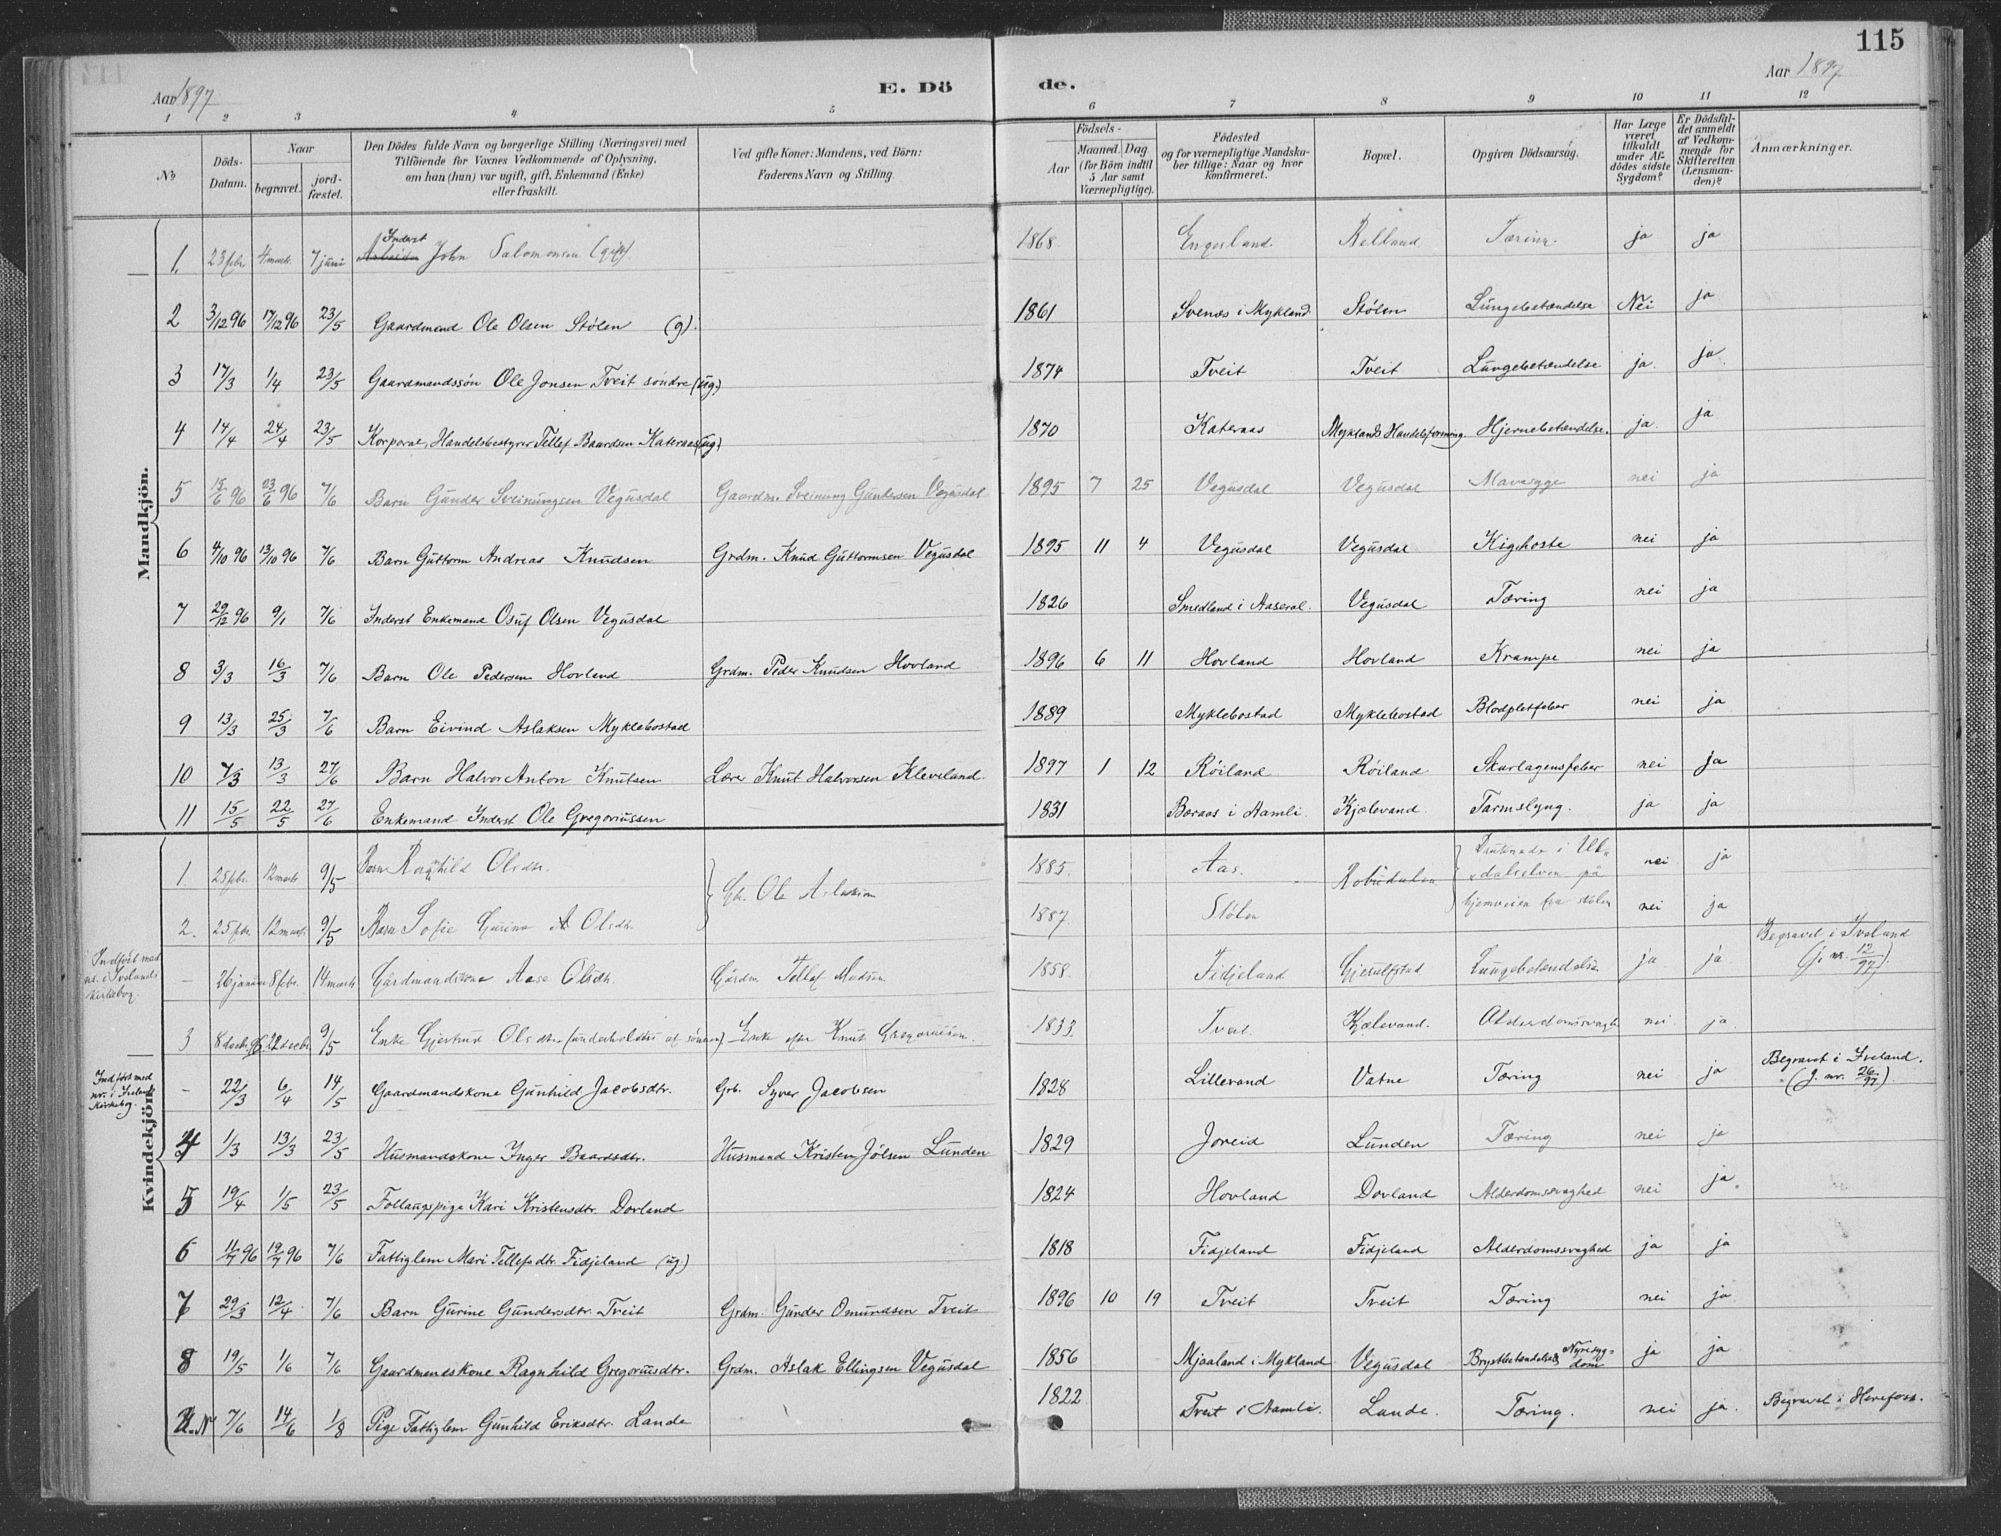 115
Aar 1897
E. Dö
de.
Aar 1897
1 2 3 4 5 6 7 8 9 10 11 12
No
Döds-Datum.
Naar
begravet.
jord-fæstet.
Den Dödes fulde Navn og borgerlige Stilling (Næringsvei) med
Tilföiende for Voxnes Vedkommende af Oplysning,
om han (hun) var ugift, gift, Enkemand (Enke)
eller fraskilt.
Ved gifte Koner: Mandens, ved Börn:
Faderens Navn og Stilling.
Födsels-
Aar
Maaned. Dag.
(for Börn indtil
5 Aar samt
Værnepligtige).
Födested
og for værnepligtige Mandska-
ber tillige: Naar og hvor
Konfirmeret.
Bopæl.
Opgiven Dödsaarsag.
Har Læge
været
tilkaldt
under Af-
dödes sidste
Sygdom?
Er Dödsfal-
det anmeldt
af Vedkom-
mende for
Skifteretten
(Lensman-
den)?
Anmærkninger.
Mandkjön.
1. 23 febr. 4 marts 7 juni Inderst John Salomonsen (gift). 1868. Engesland. Relland Tæring. ja ja
2 3/12 96 17/12 96 23/5 Gaardmand Ole Olsen Stølen (g). 1861 Svenæs i Mykland Stølen Lungebetændelse Nei ja
3 17/3 1/4 23/5 Gaardmandssøn Ole Jonsen Tveit söndre (ug.) 1874 Tveit Tveit Lungebetændelse ja. ja.
4 14/4 24/4 23/5 Korporal, Handelsbestyrer Tellef Baardsen Katernaas (ug) 1870 Katernaas Myklands Handelsforening. Hjernebetændelse. ja. ja
5 15/6 96 23/6 96 7/6 Barn Gunder Sveinungsen Vegusdal Gaardm. Sveinung Gundersen Vegusdal 1895 7 25 Vegusdal Vegusdal Mavesyge nei ja
6 4/10 96 13/10 96 7/6 Barn Guttorm Andreas Knudsen Grdm. Knud Guttormsen Vegusdal 1895 11 4 Vegusdal Vegusdal Kighoste nei ja
7 29/12 96 9/1 7/6 Inderst Enkemand Osuf Olsen Vegusdal 1826 Smedland i Aaseral. Vegusdal Tæring nei ja
8 3/3 16/3 7/6 Barn Ole Pedersen Hovland Grdm. Peder Knudsen Hovland 1896 6 11 Hovland Hovland Krampe nei ja
9 13/3 25/3 7/6 Barn Eivind Aslaksen Myklebostad 1889 Myklebostad Myklebostad Blodpletfeber nei ja
10 7/3 13/3 27/6 Barn Halvor Anton Knutsen Lærer Knut Halvorsen Kleveland. 1897 1 12 Röiland Röiland Skarlagensfeber nei ja
11 15/5 22/5 27/6 Enkemand Inderst Ole Gregoriussen 1831 Boraas i Aamli. Kjælevand. Tarmslyng. ja ja
Kvindekjön.
1. 25 febr. 12 marts 9/5 Barn Ragnhild Olsdtr. Gb. Ole Aslaksen 1885. Aas. Robudalen Druknede i Ul-
dalselven på
hjemveien fra skolen nei ja
2. 25 febr. 12 marts 9/5 Barn Sofie Gurine Olsdtr. 1887. Stølen nei ja
Indført med
nr. i Ivelands
kirkebog.
– 26 januar 8 febr. 14 marts Gardmandskone Aase Olsdtr. Gårdm. Tellef 1858. Fidjeland Gjesulfstad Lungebetændelse ja ja. Begravet i Iveland
(j. nr. 12/97).
3 8 decbr 96 22 decbr. 9/5 Enke Gjertrud Olsdtr. (underholdtes af sønnen) Enke efter Knut Gregoriussen. 1833. Tveit. Kjælevand. Alderdomssvagh. nei ja.
Indført med
nr. i Iveland
Kirkebog.
– 22/3 6/4 14/5 Gaardmandskone Gunhild Jacobsdtr. Grb. Syver Jacobsen 1828 Lillevand Vatne Tæring nei ja Begravet i Iveland.
(J. nr. 26/97).
4 1/3 13/3 23/5 Husmandskone Inger Baardsdtr. Husmand Kristen Jölsen Lunden 1829 Joreid Lunden Tæring nei ja
5 19/4 1/5 23/5 Follaugspige Kari Kristensdtr. Dovland 1824 Hovland Dovland Alderdomssvaghed nei ja.
6 11/7 96 19/7 96 7/6 Fattiglem Mari Tellefsdtr. Fidjeland (ug.) 1818 Fidjeland Fidjeland Alderdomssvaghed ja ja
7 29/3 12/4 7/6 Barn Gurine Gundersdtr. Tveit Grdm. Gunder Omundsen Tveit 1896 10 19 Tveit Tveit Tæring nei ja.
8 19/5 1/6 7/6 Gaardmandskone Ragnhild Gregoriusdtr. Grdm. Aslak Ellingsen Vegusdal 1856 Mjaaland i Mykland Vegusdal Brystbetændelse Nyresyg-
dom ja ja
U. N 7/6 14/6 1/8 Pige Fattiglem Gunhild Eriksdtr. Lande 1822 Tveit i Aamli. Lande. Tæring. nei ja. Begravet i Herefoss.